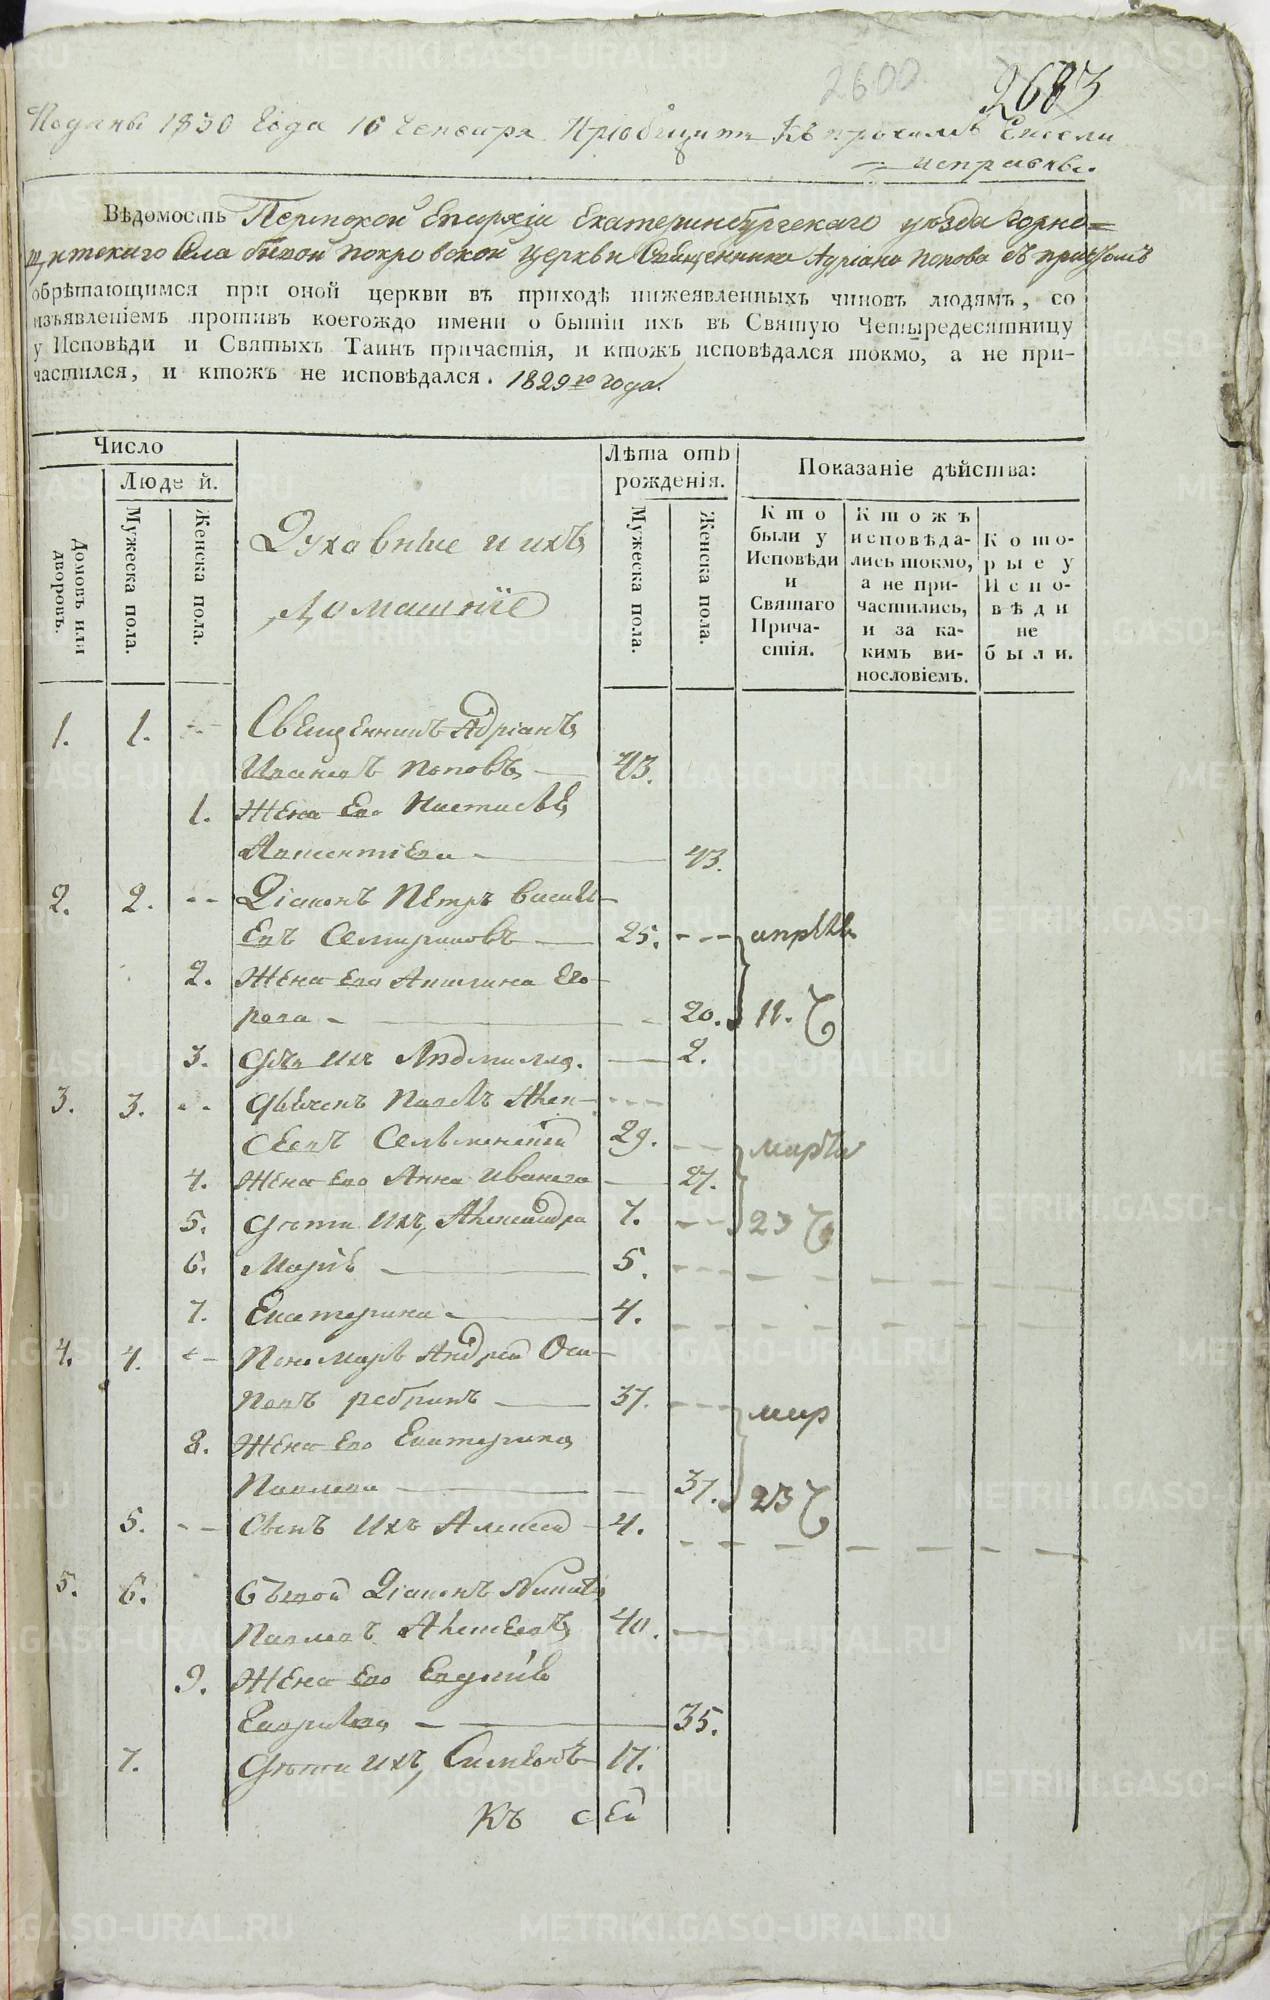 2600
2683
Поданы 1830 года 16 Генваря Приобщить къ прочимъ
Вѣдомость Пермской Епархіи Екатеринбургскаго уѣзда Горно=
щитскаго села Покровской церкви Священника Адріана Попова съ причтомъ
обрѣтающимся при оной церкви въ приходѣ нижеявленныхъ чиновъ людямъ, со
изъявленіемъ противъ коегождо имени о бытіи ихъ въ Святую Четыредесятницу
у Исповѣди и Святыхъ Таинъ причастія, и ктожъ исповѣдался токмо, а не при-
частился, и ктожъ не исповѣдался. 1829го года.
Число
Людей.
Домовъ или дворовъ.
Мужеска пола.
Женска пола.
Духовные и ихъ
домашніе
Лѣта отъ
рожденія.
Мужеска пола.
Женска пола.
Показаніе дѣйства:
Кто
были у
Исповѣди
и
Святаго
Прича-
стія.
Ктожъ
исповѣда-
лись токмо,
а не при-
частились,
и за ка-
кимъ ви-
нословіемъ.
Кото-
рые у
Испо-
вѣди
не
были.
1. 1. - - Священникъ Адріанъ
Ивановъ Поповъ — 43.
1. Жена его
— 43.
2. 2. - - Діаконъ Петръ Василь-
евъ — 25. - - - апрѣля
2. Жена его Его-
рова - — 20. 11. Ч
3. Дчь ихъ Людмилла. — 2.
3. 3. - - Дьячекъ Павелъ Алек- - - -
сѣевъ 29. - - марта
4. Жена его Анна Иванова — 27.
5. Дѣти ихъ, Александра 7. - - 23 Ч
6. Марія — 5. - - -
7. Екатерина - — 4. - - -
4. 4. - - Пономарь Андрей Оси-
повъ — 37. - - - мар
8. Жена его Екатерина
Павлова — 37. 23 Ч
5. - - Сынъ ихъ Алексей - 4. - - -
5. 6. Діаконъ Никита
Павловъ Алексеевъ 40. —
9. Жена его Евдокія
— 35.
7. Дѣти ихъ, Симеонъ — 17.
Къ сей